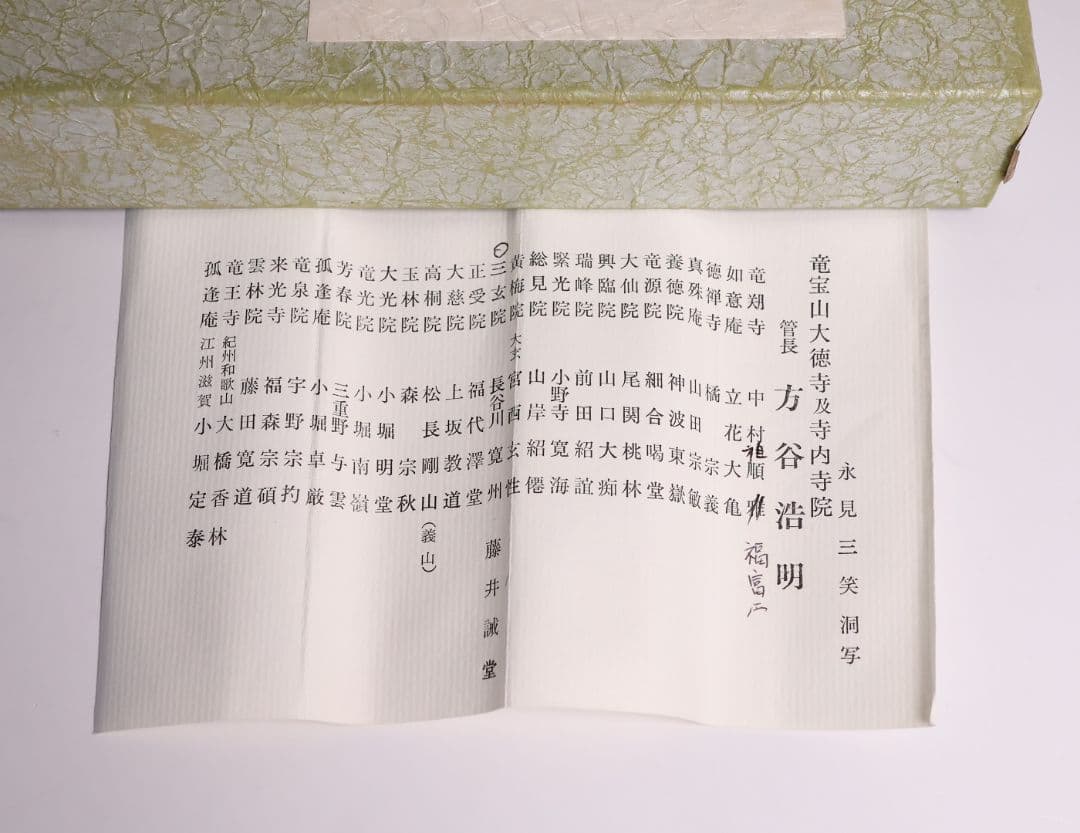 永見三笑洞写
竜宝山大徳寺及寺内寺院
管長 方谷浩明
竜翔寺 中村祖順
福富
如意庵 立花大亀
徳禅寺 橘宗義
真珠庵 山田宗敏
養徳院 神波東嶽
竜源院 細合喝堂
大仙院 尾関桃林
興臨院 山口大痴
瑞峰院 前田紹誼
緊光院 小野寺寛海
総見院 山岸紹僊
黄梅院 大玄 宮西玄性
三玄院 長谷川寛州 藤井誡堂
正受院 福代澤堂
大慈院 上坂教道
高桐院 松長剛山(義山)
玉林院 森宗秋
大光院 小堀明堂
竜光院 小堀南嶺
芳春院 三重野与雲
孤逢庵 小堀卓厳
竜泉院 宇野宗扚
来光寺 福森宗碩
雲林院 藤田寛道
竜王寺 紀州和歌山 大橋香林
孤逢庵 江州滋賀 小堀定泰